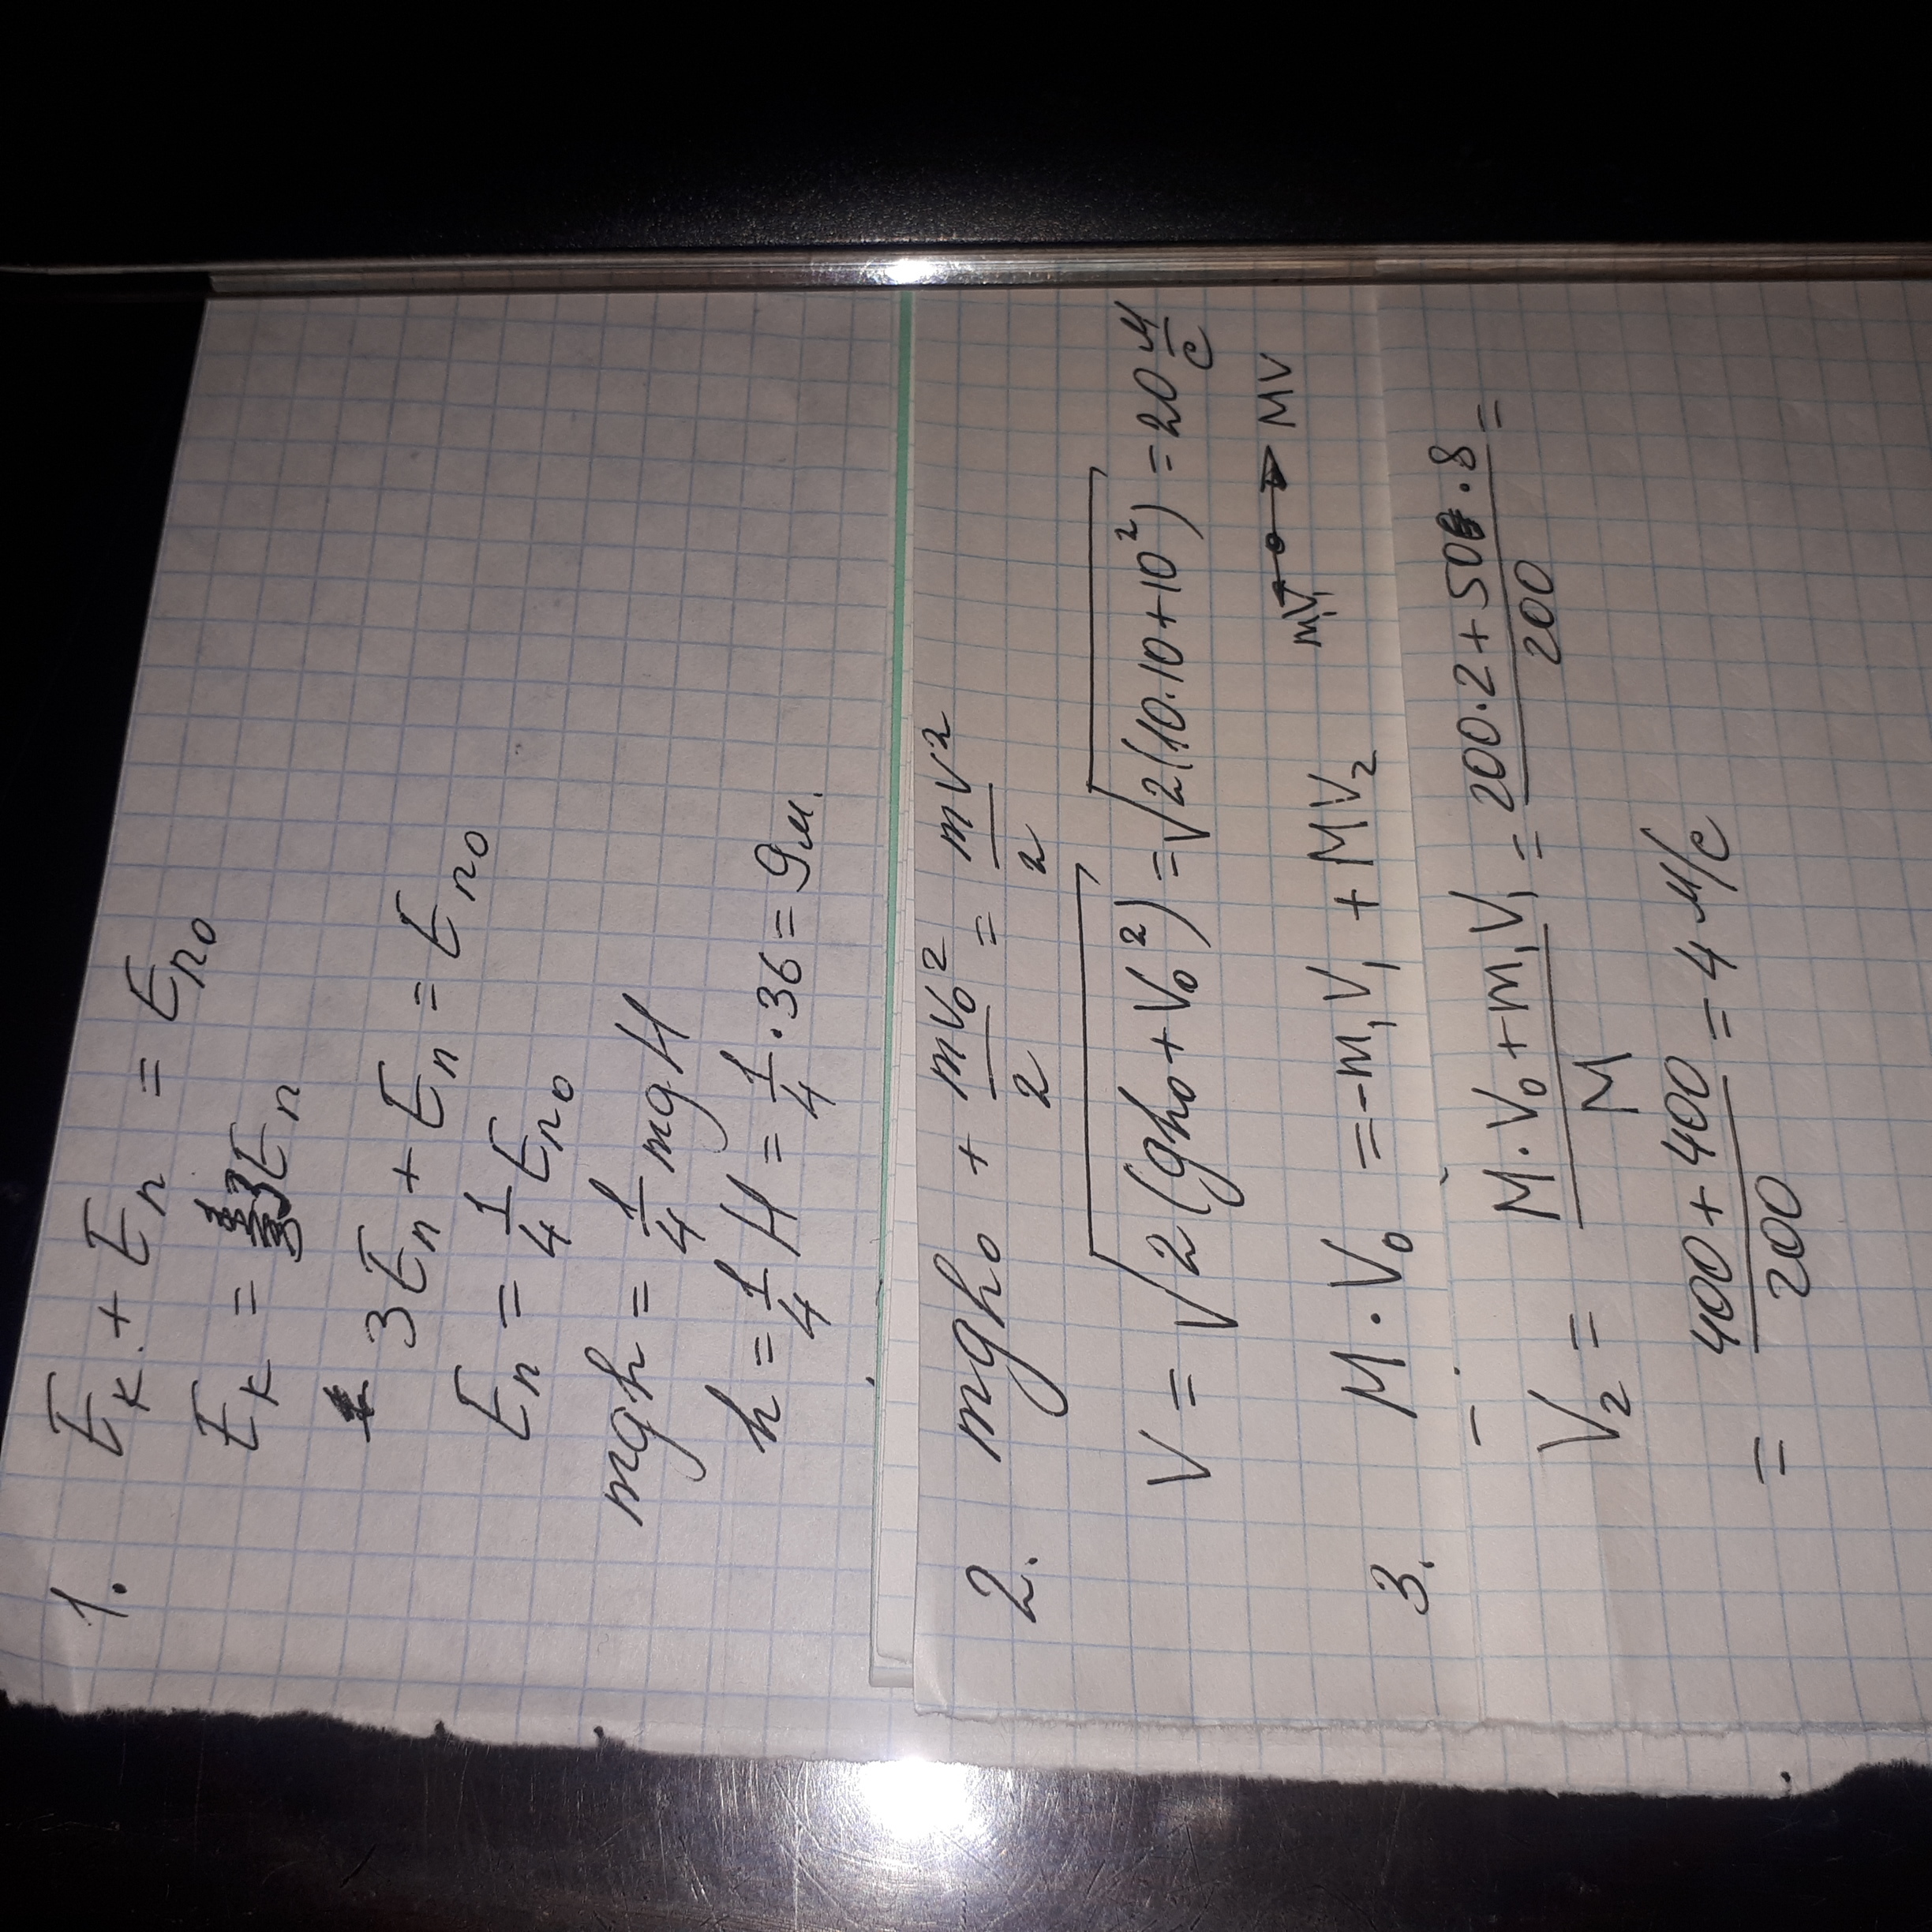 1. Eк + Eп = Eп0
Eк = 3Eп
3Eп + Eп = Eп0
Eп = 1/4 Eп0
mgh = 1/4 mgH
h = 1/4 H = 1/4 · 36 = 9м.
2. mgh₀ + mV₀²/2 = mV²/2
V = √(2(gh₀ + V₀²)) = √(2(10·10+10²)) = 20 м/с
m₁V₁ MV
3. M · V₀ = -m₁V₁ + MV₂
V₂ = (M·V₀+m₁V₁)/M = (200·2+50·8)/200 =
= (400+400)/200 = 4 м/с